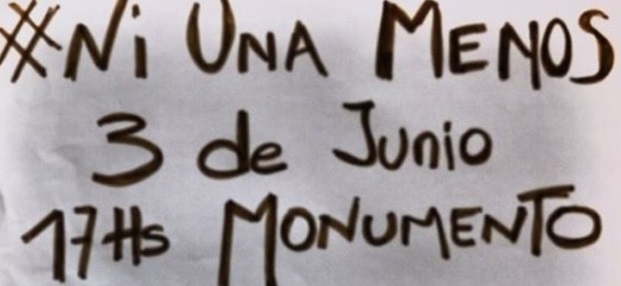 #Ni UNA MENOS
3 de Junio
17Hs MONUMENTO